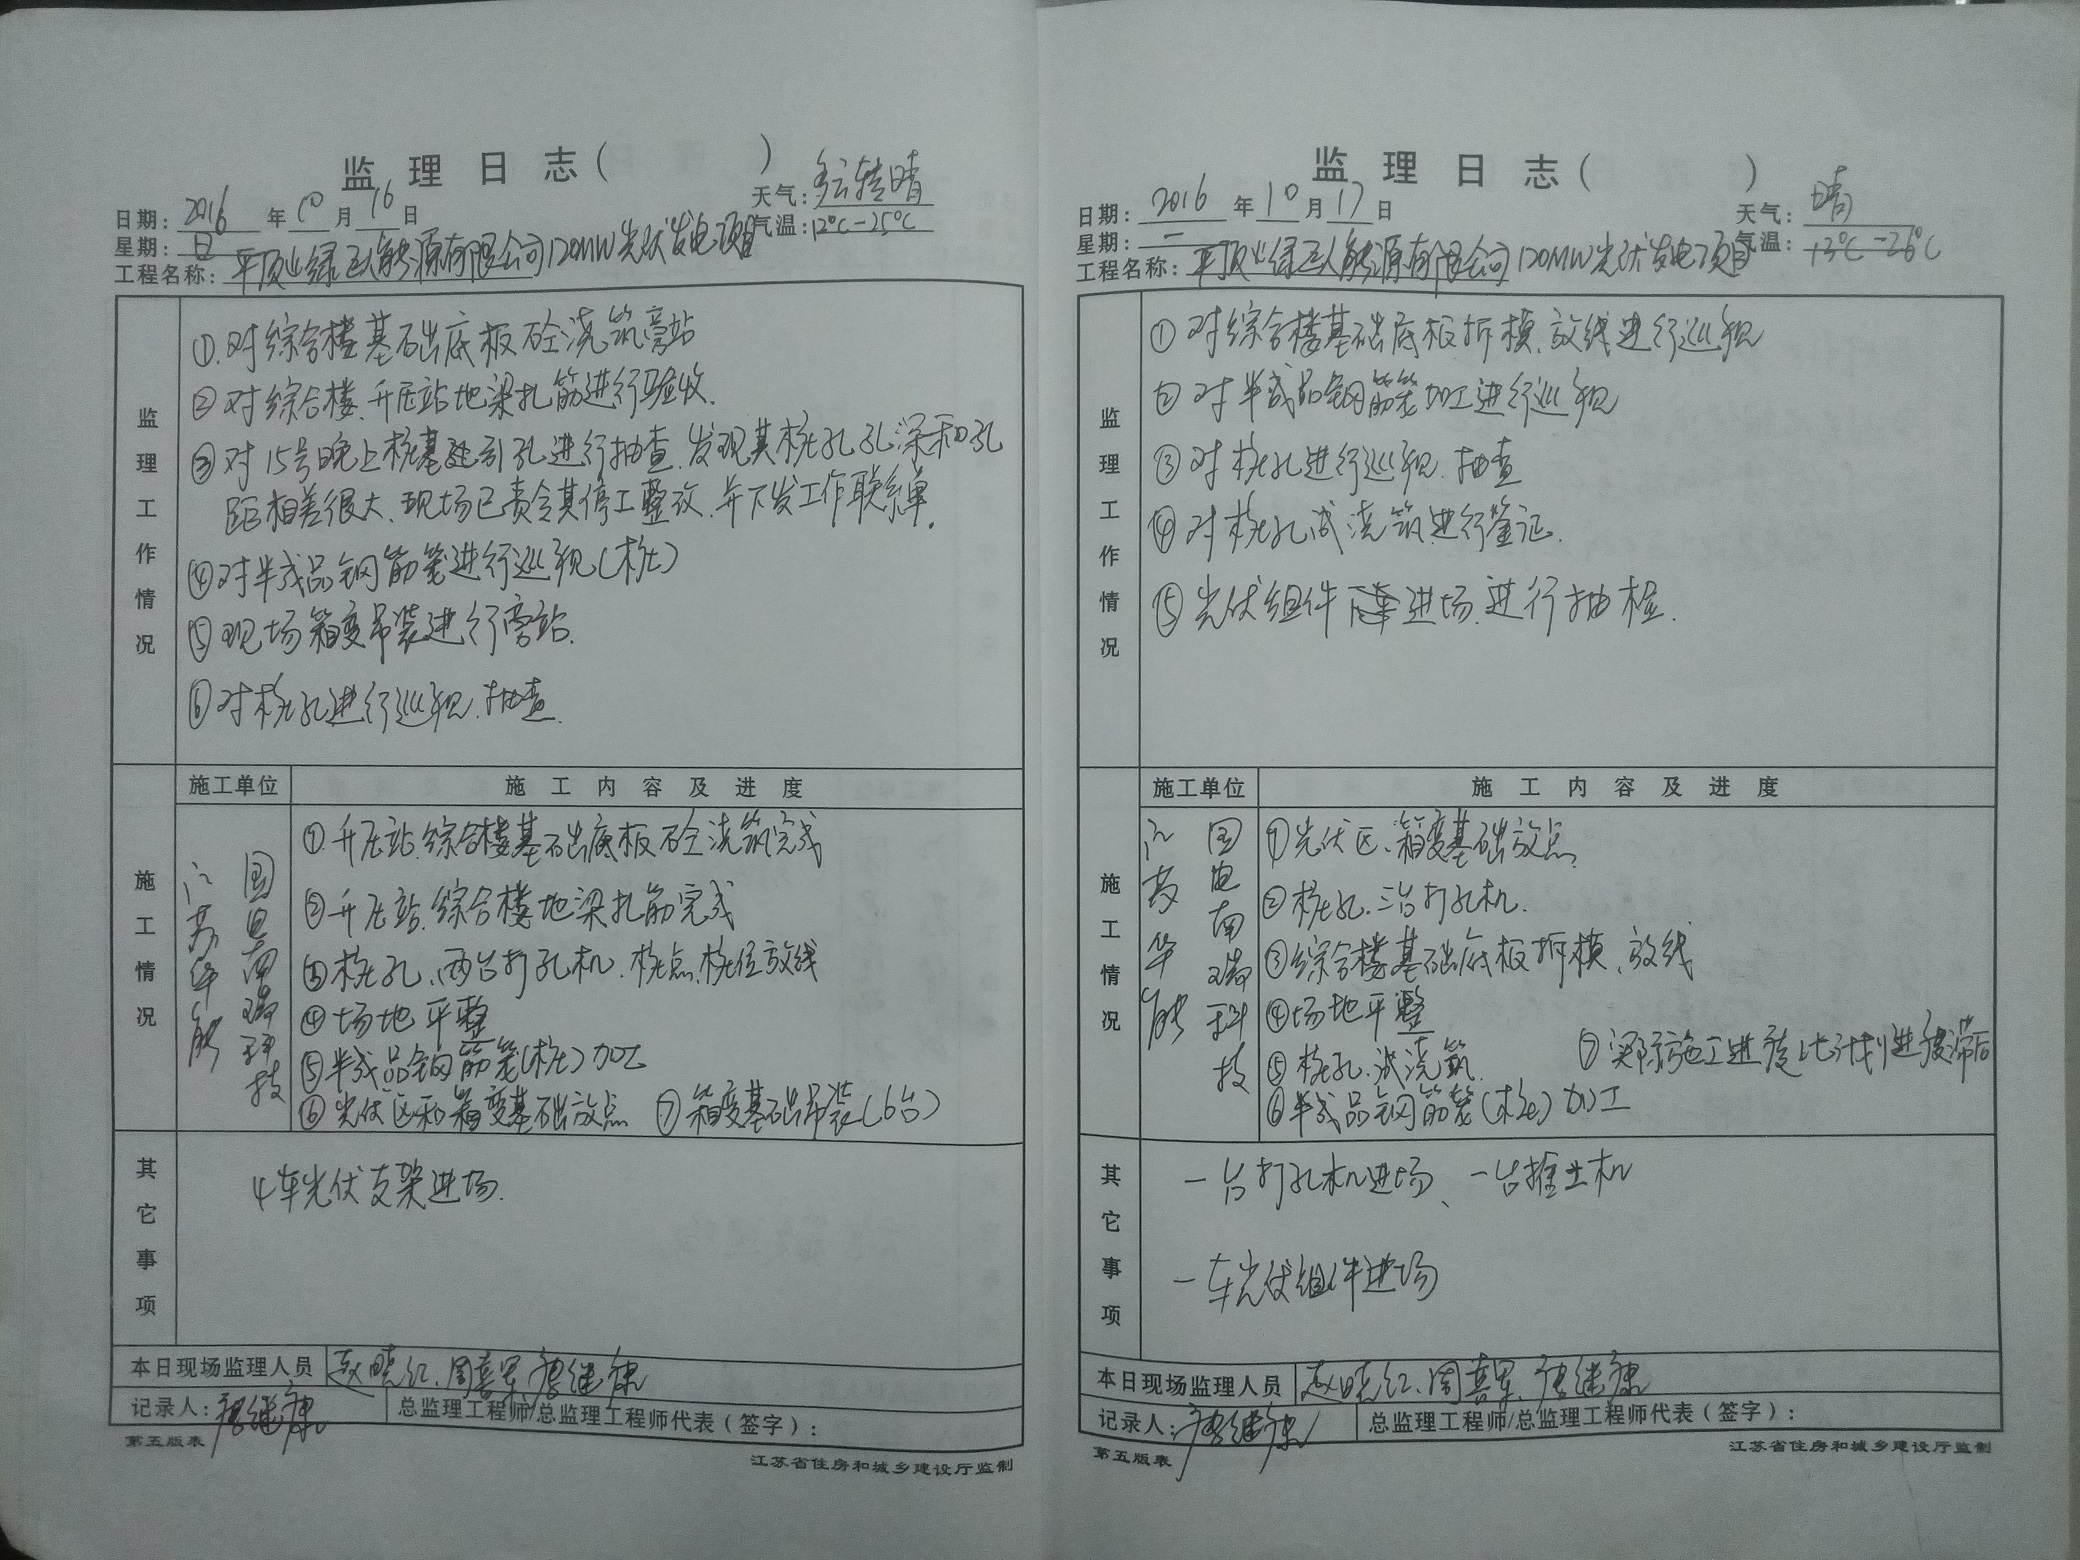 监理日志( )
日期: 2016 年 10 月 16 日
天气: 多云转晴
星期: 日
气温: 12℃-25℃
工程名称: 平顶山绿巨人能源有限公司120MW光伏发电项目
监理工作情况
①.对综合楼基础底板砼浇筑旁站
②对综合楼、升压站地梁扎筋进行验收.
③对15号晚上桩基引孔进行抽查.发现其桩孔孔深和孔
距相差很大、现场已责令其停工整改.并下发工作联系单.
④对半成品钢筋笼进行巡视(桩)
⑤现场箱变吊装进行旁站.
⑥对桩孔进行巡视.抽查.
施工单位 施工内容及进度
施工情况
江苏华能
国电南瑞科技
①.升压站.综合楼基础底板砼浇筑完成
②升压站.综合楼地梁扎筋完成
③桩孔、两台打孔机.桩点.桩位放线
④场地平整
⑤半成品钢筋笼(桩)加工
⑥光伏区和箱变基础放点 ⑦箱变基础吊装(6台)
其它事项
4车光伏支架进场.
本日现场监理人员 赵晓红、周喜军、唐继康
记录人: 唐继康 总监理工程师/总监理工程师代表(签字):
第五版表
江苏省住房和城乡建设厅监制
监理日志( )
日期: 2016 年 10 月 17 日
天气: 晴
星期: 一
气温: 13℃-26℃
工程名称: 平顶山绿巨人能源有限公司120MW光伏发电项目
监理工作情况
①对综合楼基础底板拆模.放线进行巡视
②对半成品钢筋笼加工进行巡视
③对桩孔进行巡视.抽查
④对桩孔试浇筑进行鉴证.
⑤光伏组件进场.进行抽检.
施工单位 施工内容及进度
施工情况
江苏华能
国电南瑞科技
①光伏区、箱变基础放点
②桩孔.三台打孔机.
③综合楼基础底板拆模、放线
④场地平整
⑤桩孔.试浇筑. ⑦实际施工进度比计划进度滞后
⑥半成品钢筋笼(桩)加工
其它事项
一台打孔机进场、一台推土机
一车光伏组件进场
本日现场监理人员 赵晓红、周喜军、唐继康
记录人: 唐继康 总监理工程师/总监理工程师代表(签字):
第五版表
江苏省住房和城乡建设厅监制